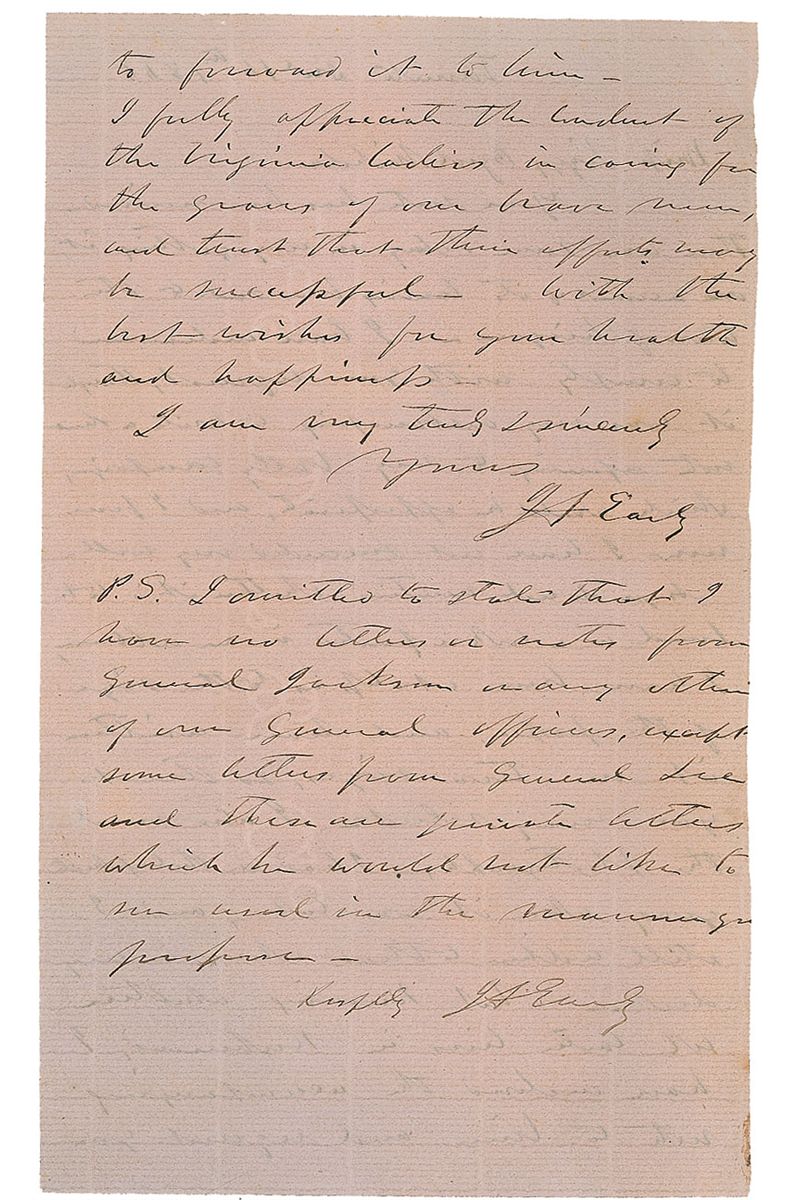 to forward it to him –
I fully appreciate the conduct of
the Virginia ladies in caring for
the graves of our brave men,
and trust that their efforts may
be successful – With the
best wishes for your health
and happiness
I am very truly & sincerely
Yours
J A Early
P.S. I omitted to state that I
have no letters or notes from
General Jackson or any other
of our General officers, except
some letters from General Lee
and these are private letters
which he would not like to
see used in the manner you
propose –
Respfly J A Early